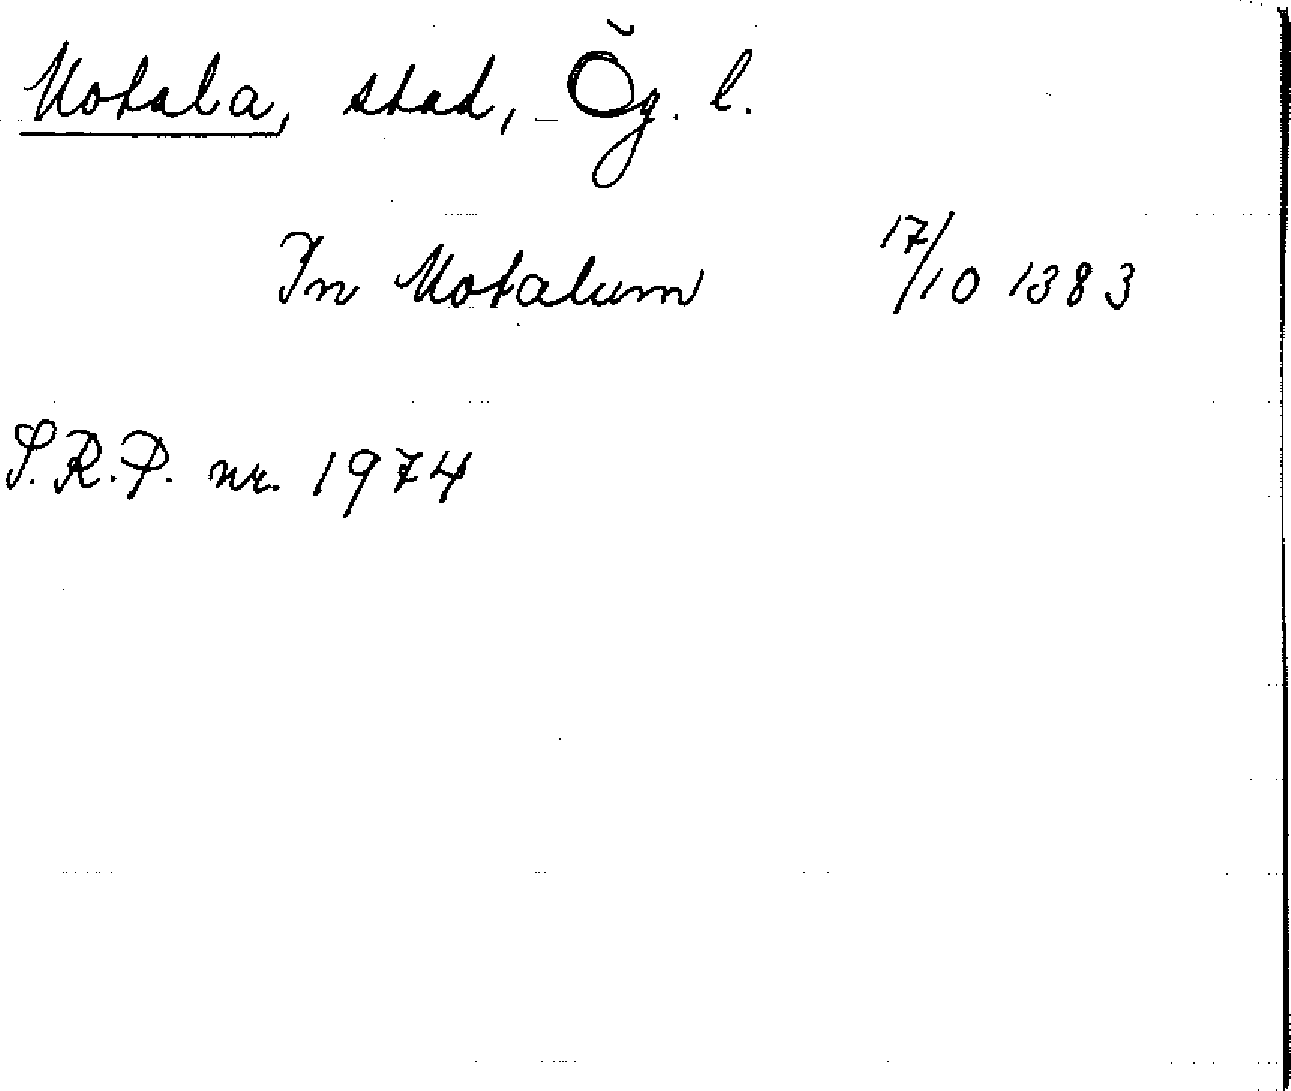 Motala, stad, Ög. l.
In Motalum 17/10 1383
S.R.P. nr. 1974